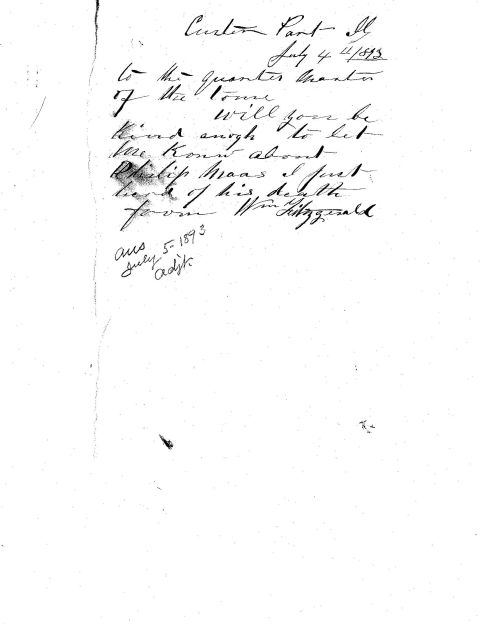 Custer Part Ill
July 4th/1893
to the quarter master
of the home
Will you be
kind anogh to let
me Konw about
Philip Maas I Just
heard of his death
from Wm Fitzgerald
ans
July 5-1893
adjt